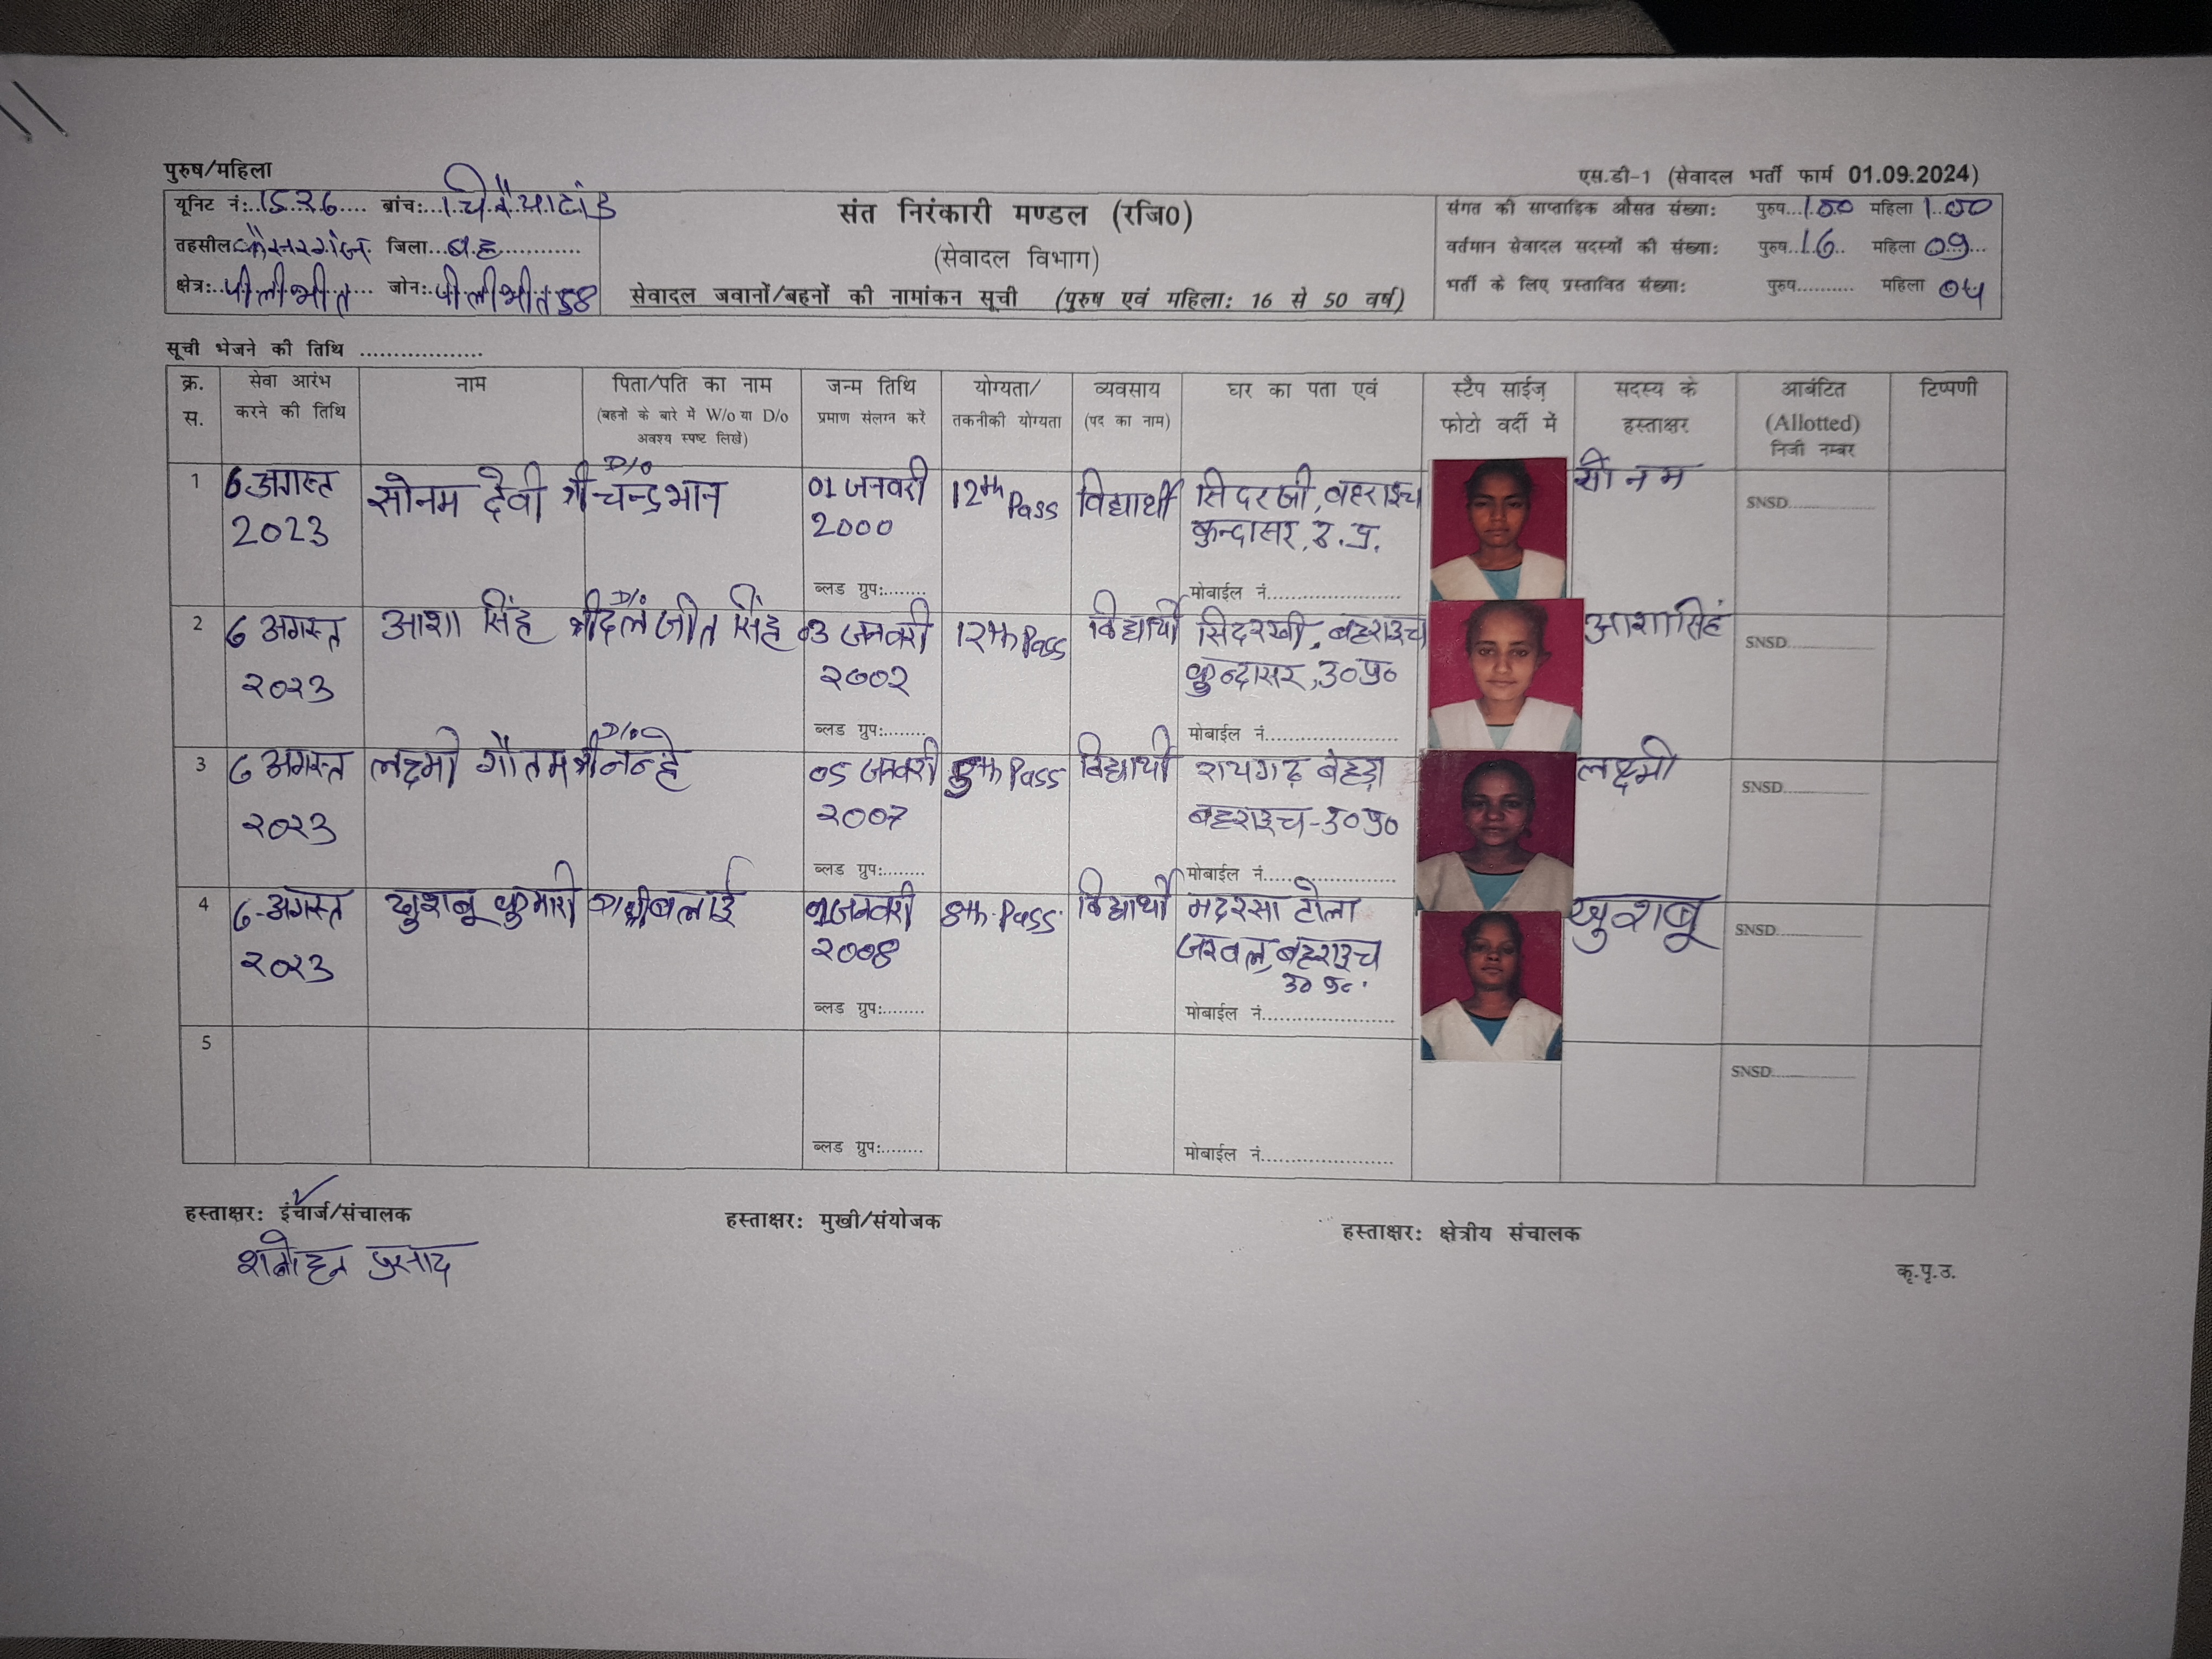 पुरुष/महिला
एस.डी-1 (सेवादल भर्ती फार्म 01.09.2024)
यूनिट नं:..1526.... ब्रांच:..
तहसील कैसरगंज. जिला...बह............
क्षेत्र:..पीलीभीत... जोन:.पीलीभीत 58
संत निरंकारी मण्डल (रजि0)
(सेवादल विभाग)
सेवादल जवानों/बहनों की नामांकन सूची (पुरुष एवं महिला: 16 से 50 वर्ष)
संगत की साप्ताहिक औसत संख्या: पुरुष...100 महिला 100
वर्तमान सेवादल सदस्यों की संख्या: पुरुष...16.. महिला 09...
भर्ती के लिए प्रस्तावित संख्या: पुरुष.......... महिला
सूची भेजने की तिथि ..................
क्र. स.
सेवा आरंभ करने की तिथि
नाम
पिता/पति का नाम
(बहनों के बारे में W/o या D/o अवश्य स्पष्ट लिखें)
जन्म तिथि
प्रमाण संलग्न करें
योग्यता/
तकनीकी योग्यता
व्यवसाय
(पद का नाम)
घर का पता एवं
स्टैप साईज़
फोटो वर्दी में
सदस्य के
हस्ताक्षर
आबंटित
(Allotted)
निजी नम्बर
टिप्पणी
1 6 अगस्त 2023 सोनम देवी D/o श्री चन्द्रभान 01 जनवरी 2000 12th Pass विद्यार्थी सिदरखी, बहराइच कुन्दासर, उ.प्र. सोनम SNSD..............
ब्लड ग्रुप:........ मोबाईल नं.......................
2 6 अगस्त २०२३ आशा सिंह D/o श्री दलजीत सिंह 03 जनवरी २००२ १२th Pass विद्यार्थी सिदरखी, बहराइच कुन्दासर, उ०प्र० आशा सिंह SNSD..............
ब्लड ग्रुप:........ मोबाईल नं.......................
3 6 अगस्त २०२३ लक्ष्मी गौतम D/o श्री नन्हे 05 जनवरी २००७ 8th Pass विद्यार्थी रायगढ़ बहराइच-उ०प्र० लक्ष्मी SNSD..............
ब्लड ग्रुप:........ मोबाईल नं.......................
4 6-अगस्त २०२३ खुशबू कुमारी श्री बलाई जनवरी २००8 8th Pass विद्यार्थी मदरसा टोला जरवल, बहराइच उ० प्र० खुशबू SNSD..............
ब्लड ग्रुप:........ मोबाईल नं.......................
5 SNSD..............
ब्लड ग्रुप:........ मोबाईल नं.......................
हस्ताक्षर: इंचार्ज/संचालक
हस्ताक्षर: मुखी/संयोजक
हस्ताक्षर: क्षेत्रीय संचालक
प्रसाद
कृ.पृ.उ.